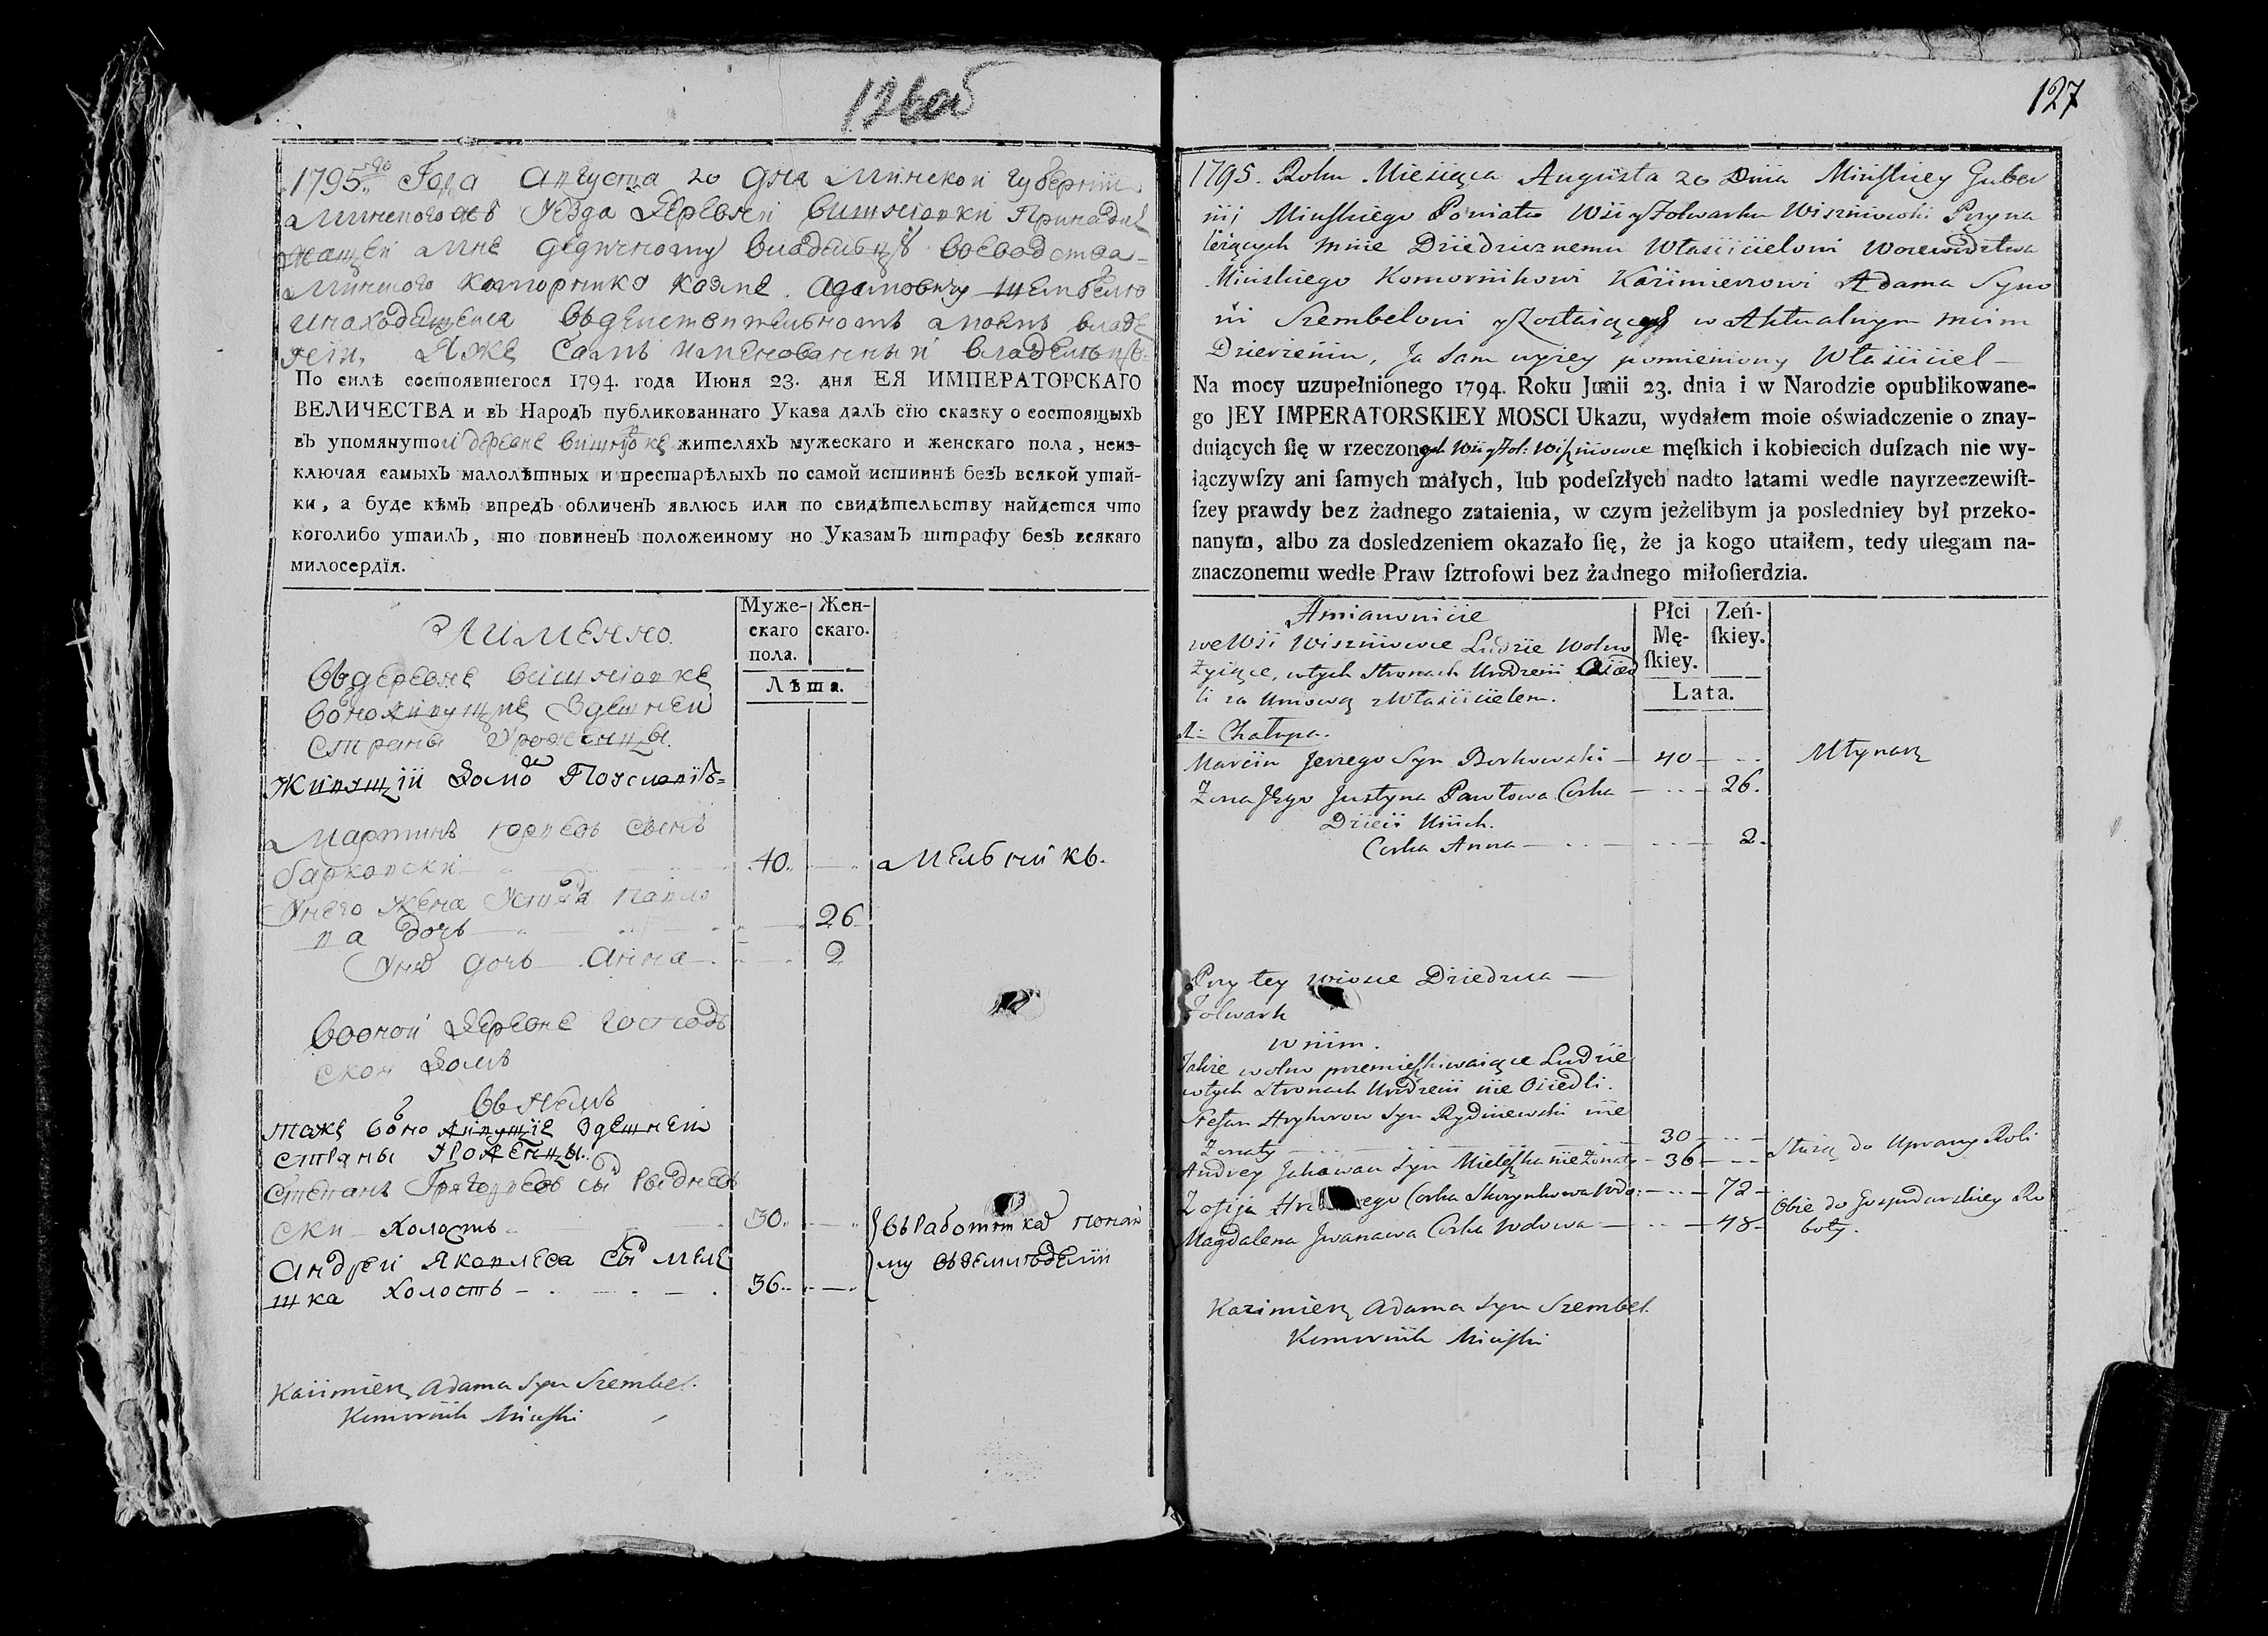 126об
1795го Года Августа 20 дня Минской губернии
Минского Уезда Деревни Вишнювки Принадле
жащей мне дедичному владельцу воеводства
Минского Коморнику Казме. Адамовичу Шембелю
и находящеися в действительном моем владе
нии, Я же Самъ имянованный владелец
По силѣ состоявшегося 1794. года Июня 23. дня ЕЯ ИМПЕРАТОРСКАГО
ВЕЛИЧЕСТВА и въ Народъ публикованнаго Указа далъ сїю сказку о состоящыхъ
въ упомянутой деревне Вишнювке жителяхъ мужескаго и женскаго пола, неиз-
ключая самыхъ малолѣтных и престарѣлыхъ по самой истиннѣ безъ всякой утай-
ки, а буде кѣмъ впредъ обличенъ явлюсь или по свидѣтельству найдется что
коголибо утаилъ, то повиненъ положенному по Указамъ штрафу безъ всякаго
милосердїя.
Муже-скаго пола. Жен-скаго.
Лѣта.
А имянно.
Въ деревне Вишнювке
вольноживущие Здешней
Страны Уроженцы.
Живущїи Домо
Мартинъ юрьевъ сынъ
барковски 40. Мельникъ.
У него жена Устина павло
ва дочь 26
У них дочь Анна 2
В оной Деревне господ
ской Домъ
Въ Немъ
также вольно живущїе Здешней
страны Уроженцы.
Степанъ Григорьевъ сын Рыднев
ски Холостъ 30. в Работниках по най
Андрей Яковлева сын меле
шка Холостъ 36. му в земледелии
Kazimierz Adama Syn Szembel.
Komornik Minski
127
1795. Roku Miesiąca Augusta 20 Dnia Minskiey Guber
nij Minskiego Powiatu Wsi y Folwarku Wiszniowki Przyna
leżących mnie Dziedzicznemu Właścicielowi Woiewództwa
Minskiego Komornikowi Kazimierzowi Adama Syno
wi Szembelowi y Zostaiących w Aktualnym moim
Dzierżeniu, Ja Sam wyżey pomieniony Właściciel
Na mocy uzupełnionego 1794. Roku Junii 23. dnia i w Narodzie opublikowane-
go JEY IMPERATORSKIEY MOSCI Ukazu, wydałem moie oświadczenie o znay-
duiących ſię w rzeczonych Wsi y Fol: Wiszniowce męſkich i kobiecich duſzach nie wy-
łączywſzy ani ſamych małych, lub podeſzłych nadto latami wedle nayrzeczewiſt-
ſzey prawdy bez żadnego zataienia, w czym jeżelibym ja posledniey był przeko-
nanym, albo za dosledzeniem okazało ſię, że ja kogo utaiłem, tedy ulegam na-
znaczonemu wedle Praw ſztrofowi bez żadnego miłoſierdzia.
Płci Mę-ſkiey. Zeń-ſkiey.
Lata.
Amianowicie
we Wsi Wiszniowce Ludzie Wolno
żyiące, w tych Stronach Urodzeni Osied
li za Umową z Właścicielem.
1: Chałupa.
Marcin Jerzego Syn Borkowski 40 Młynarz
Zona Jego Justyna Pawłowa Corka 26.
Dzieci Uiich.
Corka Anna 2.
Przy tey wiosce Dziedzica
Folwark
w nim.
Także wolno przemieszkiwaiące Ludzie
w tych Stronach Urodzeni nie Osiedli.
Stefan Hryhorow Syn Rydniewski nie
Zonaty 30 Służą do Uprawy Roli
Andrey Jakowau Syn Mieleszka nie Zonaty 36
Zofija Corka Skorynkowa Wdo: 72 Obie do Gospodarskiey Ro
Magdalena Jwanawa Corka Wdowa 48 boty.
Kazimierz Adama Syn Szembel.
Komornik Minski